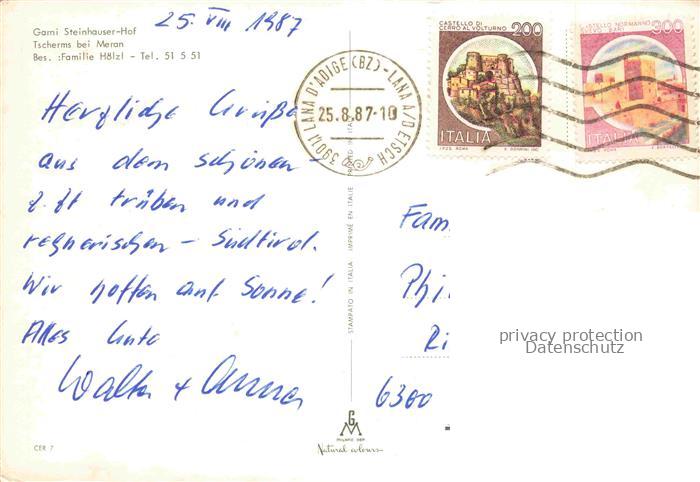 25. VIII 1987
Garni Steinhauser-Hof
Tscherms bei Meran
Bes. :Familie Hölzl - Tel. 51 5 51
Herzliche Grüße
aus dem schönen -
z. Zt trüben und
regnerischen - Südtirol.
Wir hoffen auf Sonne!
Alles Gute
Walter + Anna
CER 7
39011 LANA D'ADIGE (BZ) - LANA A/D ETSCH
25.8.87-10
CASTELLO DI
CERRO AL VOLTURNO
200
ITALIA
CASTELLO NORMANNO
SVEVO BARI
300
ITALIA
STAMPATO IN ITALIA IMPRIMÉ EN ITALIE PRINTED IN ITALY
Fam.
Phi
Ri
6300
privacy protection
Datenschutz
GM
MILANO
Natural colours